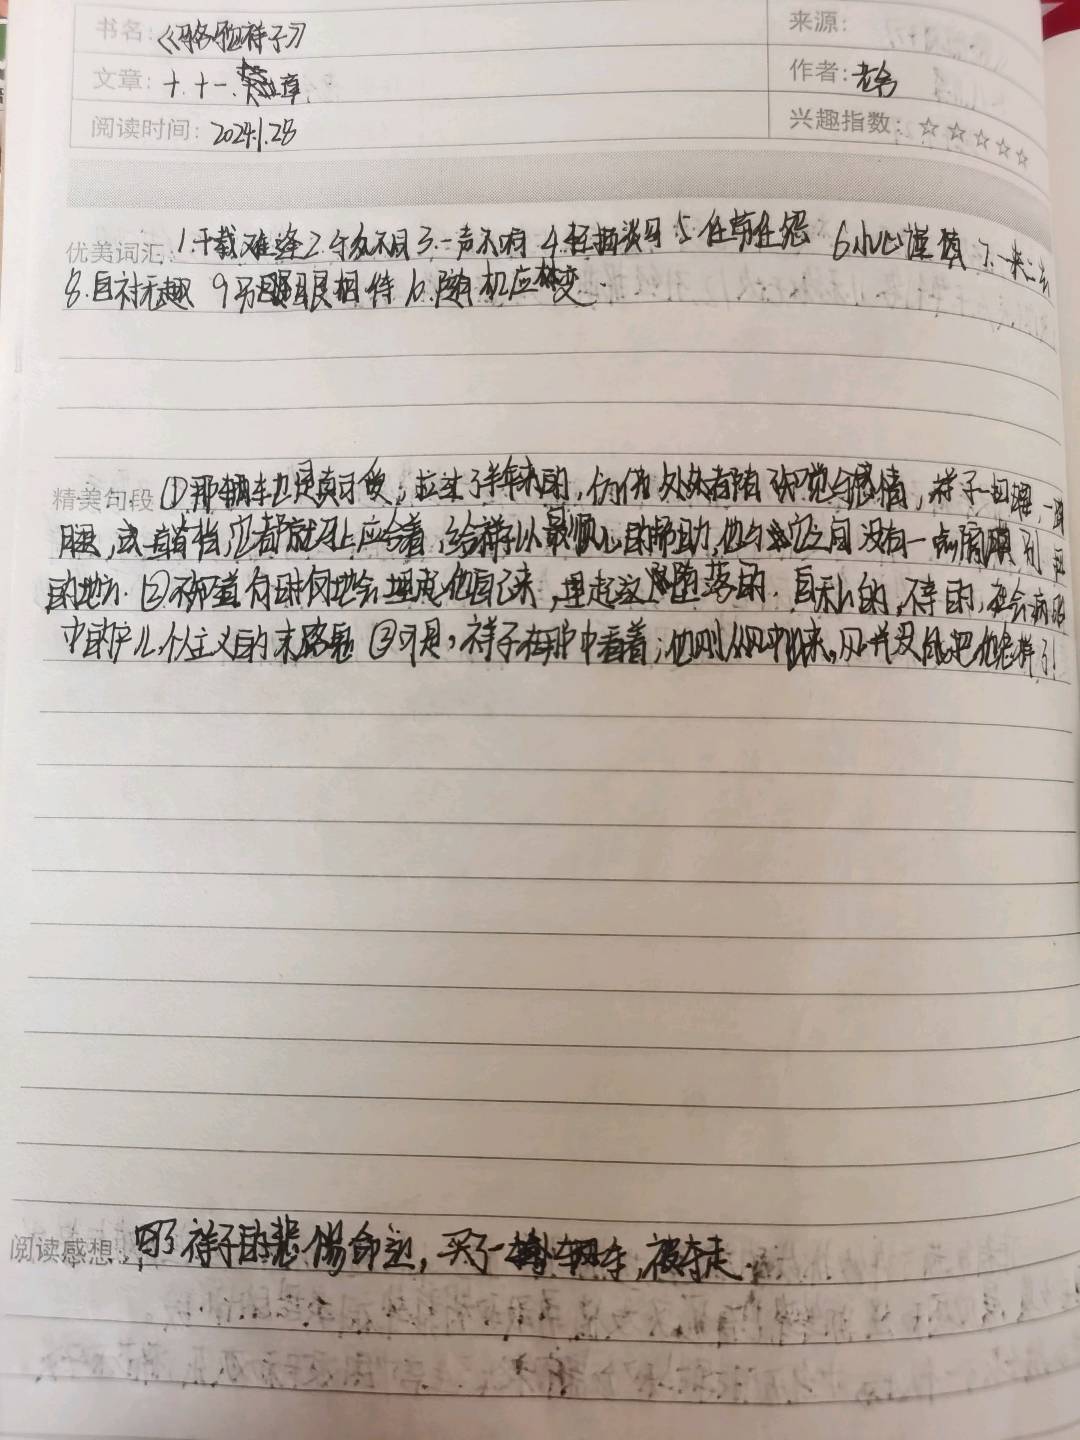 书名:《骆驼祥子》
来源:
文章: 十.十一.章
作者:老舍
阅读时间: 2024.1.28
兴趣指数: ☆☆☆☆☆
优美词汇: 1.千载难逢 2.与众不同 3.一声不响 4.轻描淡写 5.任劳任怨 6.小心谨慎 7.一来二去
8.自讨无趣 9.另眼相待 10.随机应变
精美句段 ①那辆车也真可爱;拉过了半年来的,仿佛处处都有了知觉与感情,祥子一扭腰,一蹲
腿,或一直脊梁,它都就马上应合着,给祥子以最顺心的帮助,他与它之间没有一点隔膜别扭
的地方. ②不知道何时何地会埋起他自己来,埋起这堕落的.自私的,不幸的,社会病胎
中的产儿,个人主义的末路鬼 ③可是,祥子在那里看着;他刚从风里出来,风并没能把他怎样了!
阅读感想: 写了祥子的悲伤命运,买了一辆车,被夺走.